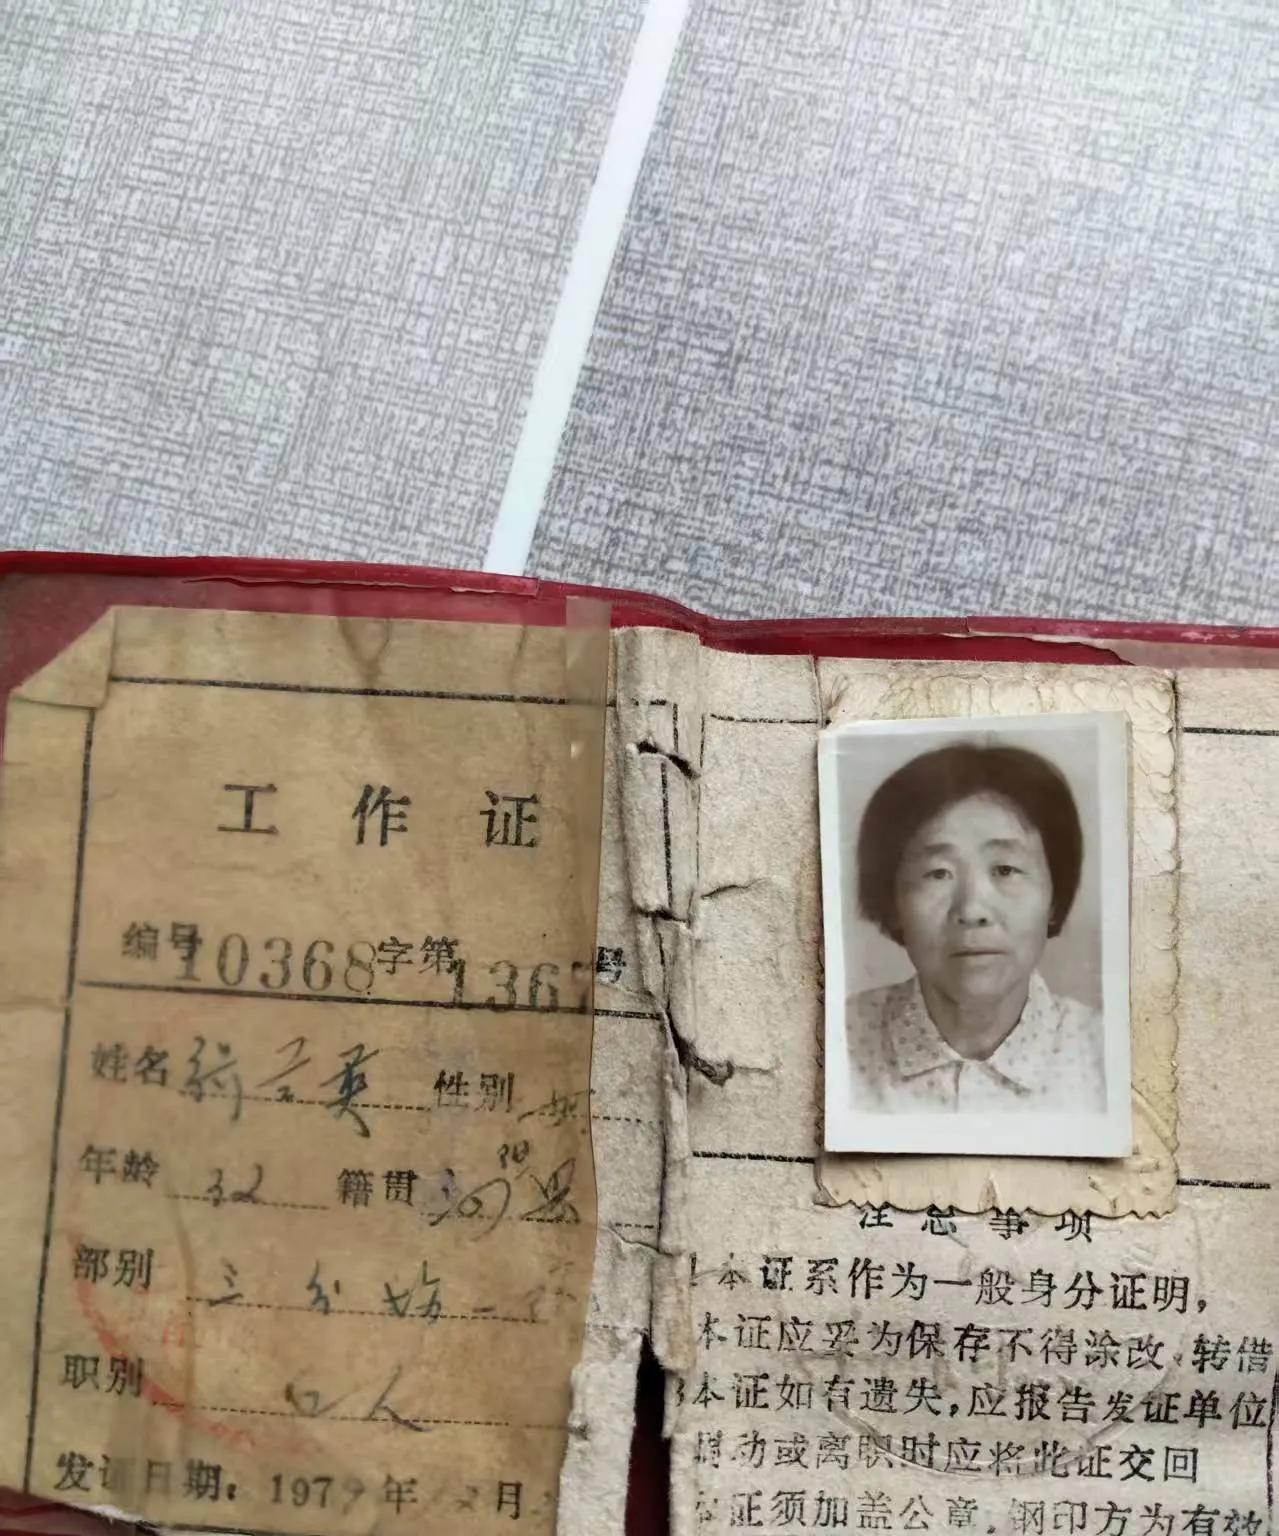 工作证
编号10368字第1367号
姓名 性别 女
年龄 籍贯 县
部别 三分场二
职别 工人
发证日期：1979年 月
注意事项
1本证系作为一般身分证明，
本证应妥为保存不得涂改、转借
3本证如有遗失，应报告发证单位
调动或离职时应将此证交回
本证须加盖公章、钢印方为有效